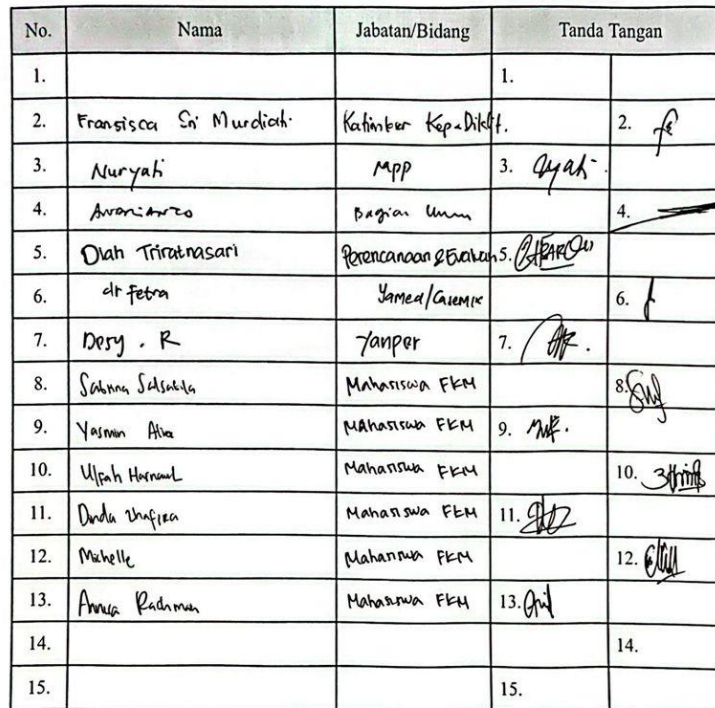 No. Nama Jabatan/Bidang Tanda Tangan
1. 1.
2. Fransisca Sri Murdiah. Katimker Kep & Diklit. 2.
3. Nuryati MPP 3. Nyati.
4. Bagian Umum 4.
5. Diah Triratnasari Perencanaan & Evaluasi 5.
6. dr Fetra Yamed/Casemix 6.
7. Desy . R Yanper 7.
8. Sabrina Salsabila Mahasiswa FKM 8.
9. Yasmin Alia Mahasiswa FKM 9.
10. Ulfah Mahasiswa FKM 10.
11. Dinda Mahasiswa FKM 11.
12. Michelle Mahasiswa FKM 12.
13. Annisa Rachman Mahasiswa FKM 13.
14. 14.
15. 15.